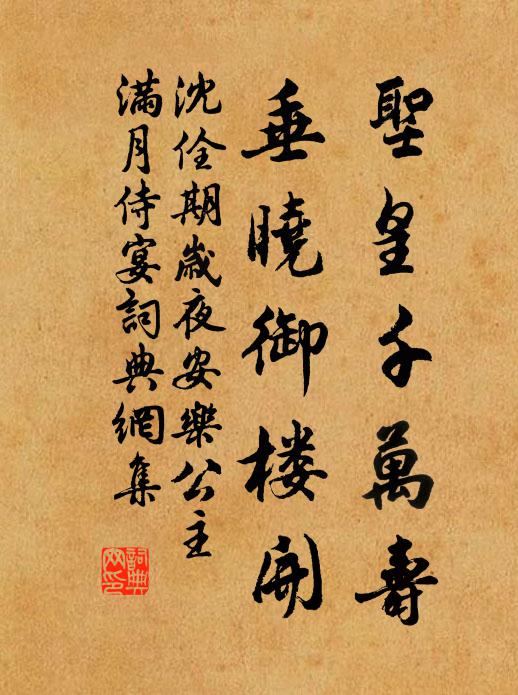 聖皇千萬壽
垂曉御楼開
沈佺期歲夜安樂公主
滿月侍宴詞典網集
詞典
网印